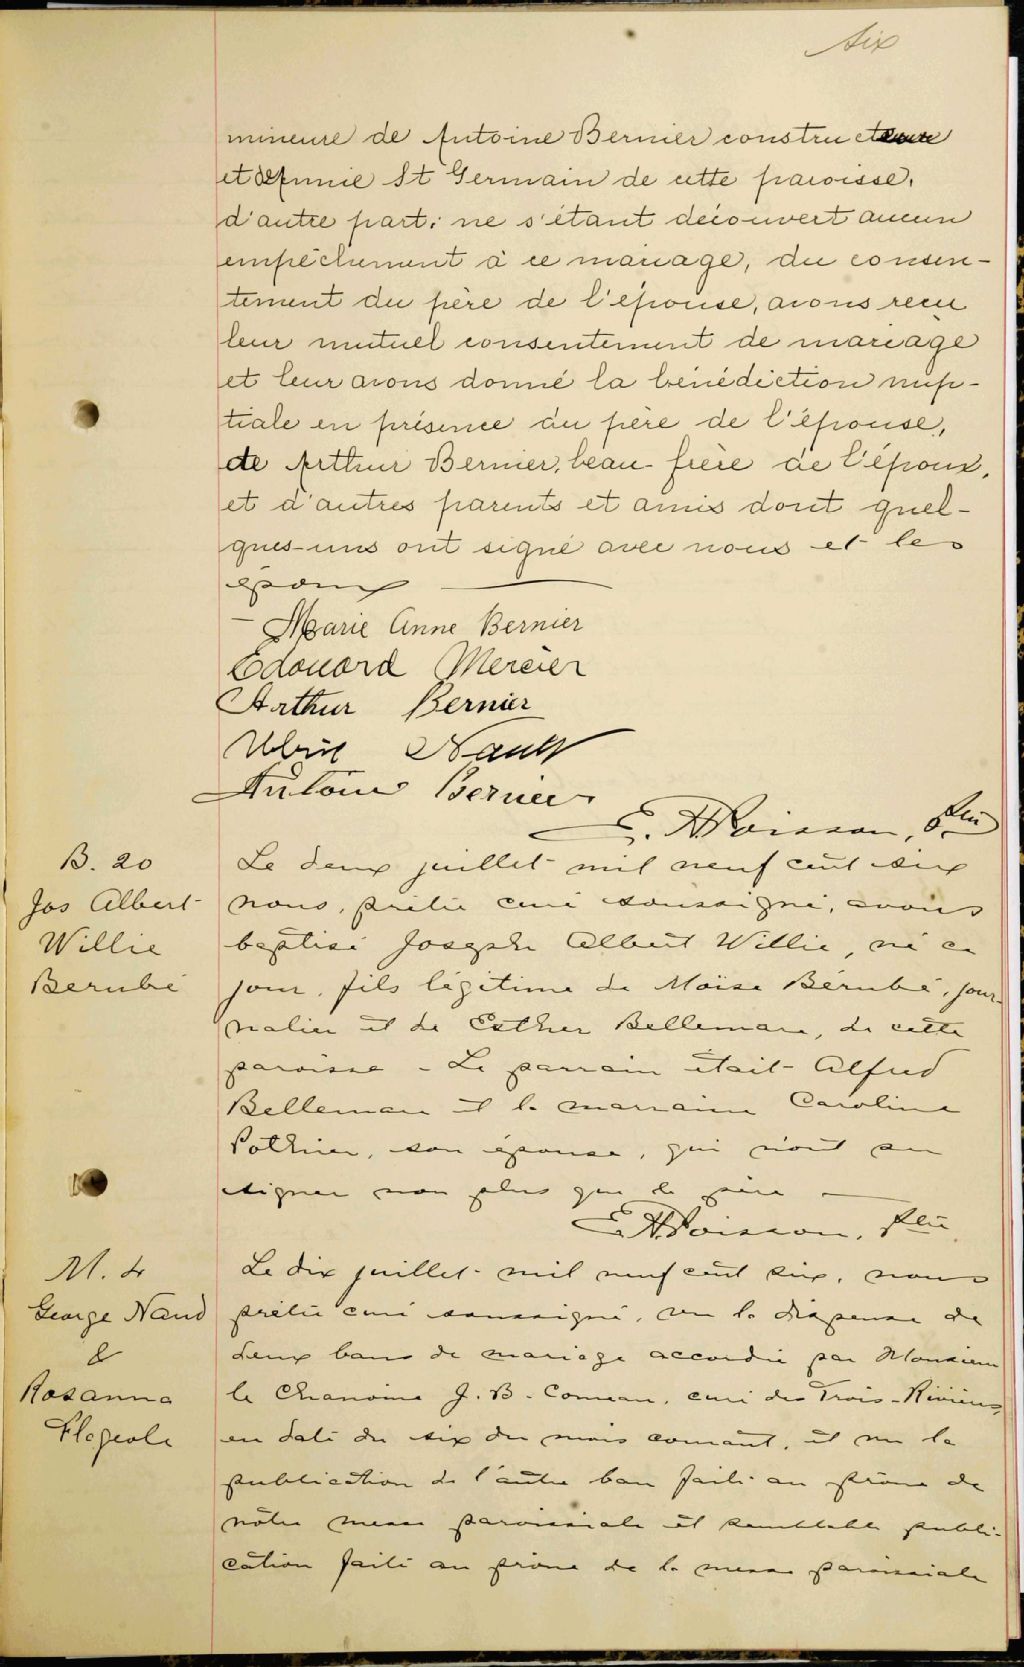 six
mineure de Antoine Bernier constructeur
et d'Annie St Germain de cette paroisse,
d'autre part; ne s'étant découvert aucun
empêchement à ce mariage, du consen-
tement du père de l'épouse, avons reçu
leur mutuel consentement de mariage
et leur avons donné la bénédiction nup-
tiale en présence du père de l'épouse,
de Arthur Bernier, beau-frère de l'époux,
et d'autres parents et amis dont quel-
ques-uns ont signé avec nous et les
époux
Marie Anne Bernier
Edouard Mercier
Arthur Bernier
Ulric Nault
Antoine Bernier
E. H. Poisson, Ptre
B. 20
Jos Albert
Willie
Berubé
Le deux juillet mil neuf cent six
nous, prêtre curé soussigné, avons
baptisé Joseph Albert Willie, né ce
jour, fils légitime de Moïse Bérubé, jour-
nalier et de Esther Bellemare, de cette
paroisse - Le parrain était Alfred
Bellemare et la marraine Caroline
Pothier, son épouse, qui n'ont su
signer non plus que le père
E. H. Poisson, Ptre
M. 4
George Naud
&
Rosanna
Flageole
Le dix juillet mil neuf cent six, nous
prêtre curé soussigné, vu la dispense de
deux bans de mariage accordée par Monsieur
le Chanoine J. B. Comeau, curé des Trois-Rivières,
en date du six du mois courant, et vu la
publication de l'autre ban faite au prône de
nôtre messe paroissiale et semblable publi-
cation faite au prône de la messe paroissiale